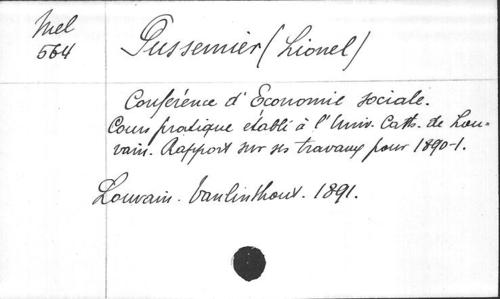 Mel
564
Pussemier (Lionel)
Conférence d'Economie sociale.
Cours pratique établi à l'Univ. Cath. de Lou-
vain. Rapport sur ses travaux pour 1890-1.
Louvain. Vanlinthout. 1891.